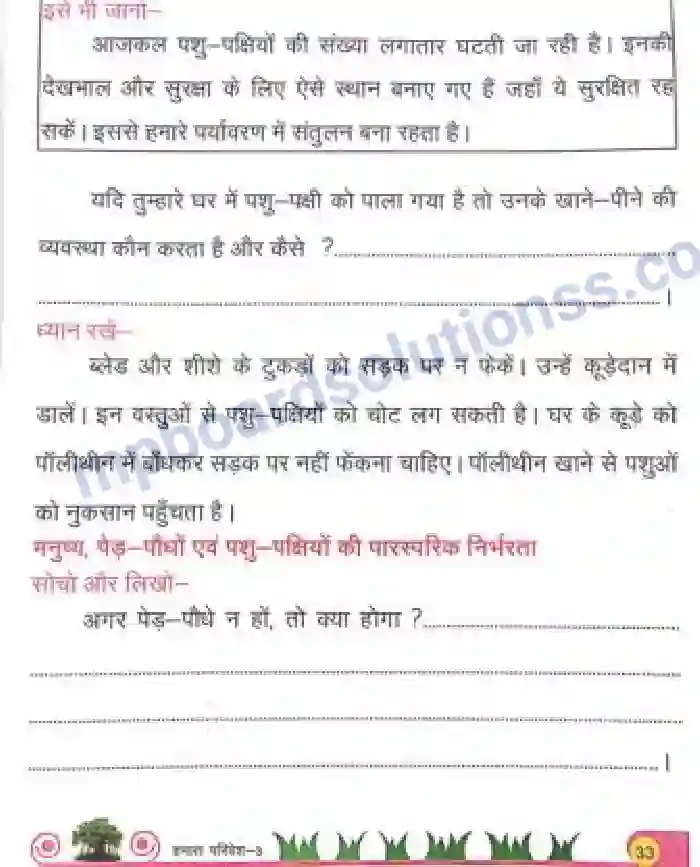 इसे भी जानो–
आजकल पशु–पक्षियों की संख्या लगातार घटती जा रही है। इनकी
देखभाल और सुरक्षा के लिए ऐसे स्थान बनाए गए हैं जहाँ ये सुरक्षित रह
सकें। इससे हमारे पर्यावरण में संतुलन बना रहता है।
यदि तुम्हारे घर में पशु–पक्षी को पाला गया है तो उनके खाने–पीने की
व्यवस्था कौन करता है और कैसे ?
।
ध्यान रखें–
ब्लेड और शीशे के टुकड़ों को सड़क पर न फेकें। उन्हें कूड़ेदान में
डालें। इन वस्तुओं से पशु–पक्षियों को चोट लग सकती है। घर के कूड़े को
पॉलीथीन में बाँधकर सड़क पर नहीं फेंकना चाहिए। पॉलीथीन खाने से पशुओं
को नुकसान पहुँचता है।
mpboardsolutionss.co
मनुष्य, पेड़–पौधों एवं पशु–पक्षियों की पारस्परिक निर्भरता
सोचो और लिखो–
अगर पेड़–पौधे न हों, तो क्या होगा ?
।
हमारा परिवेश–3
33